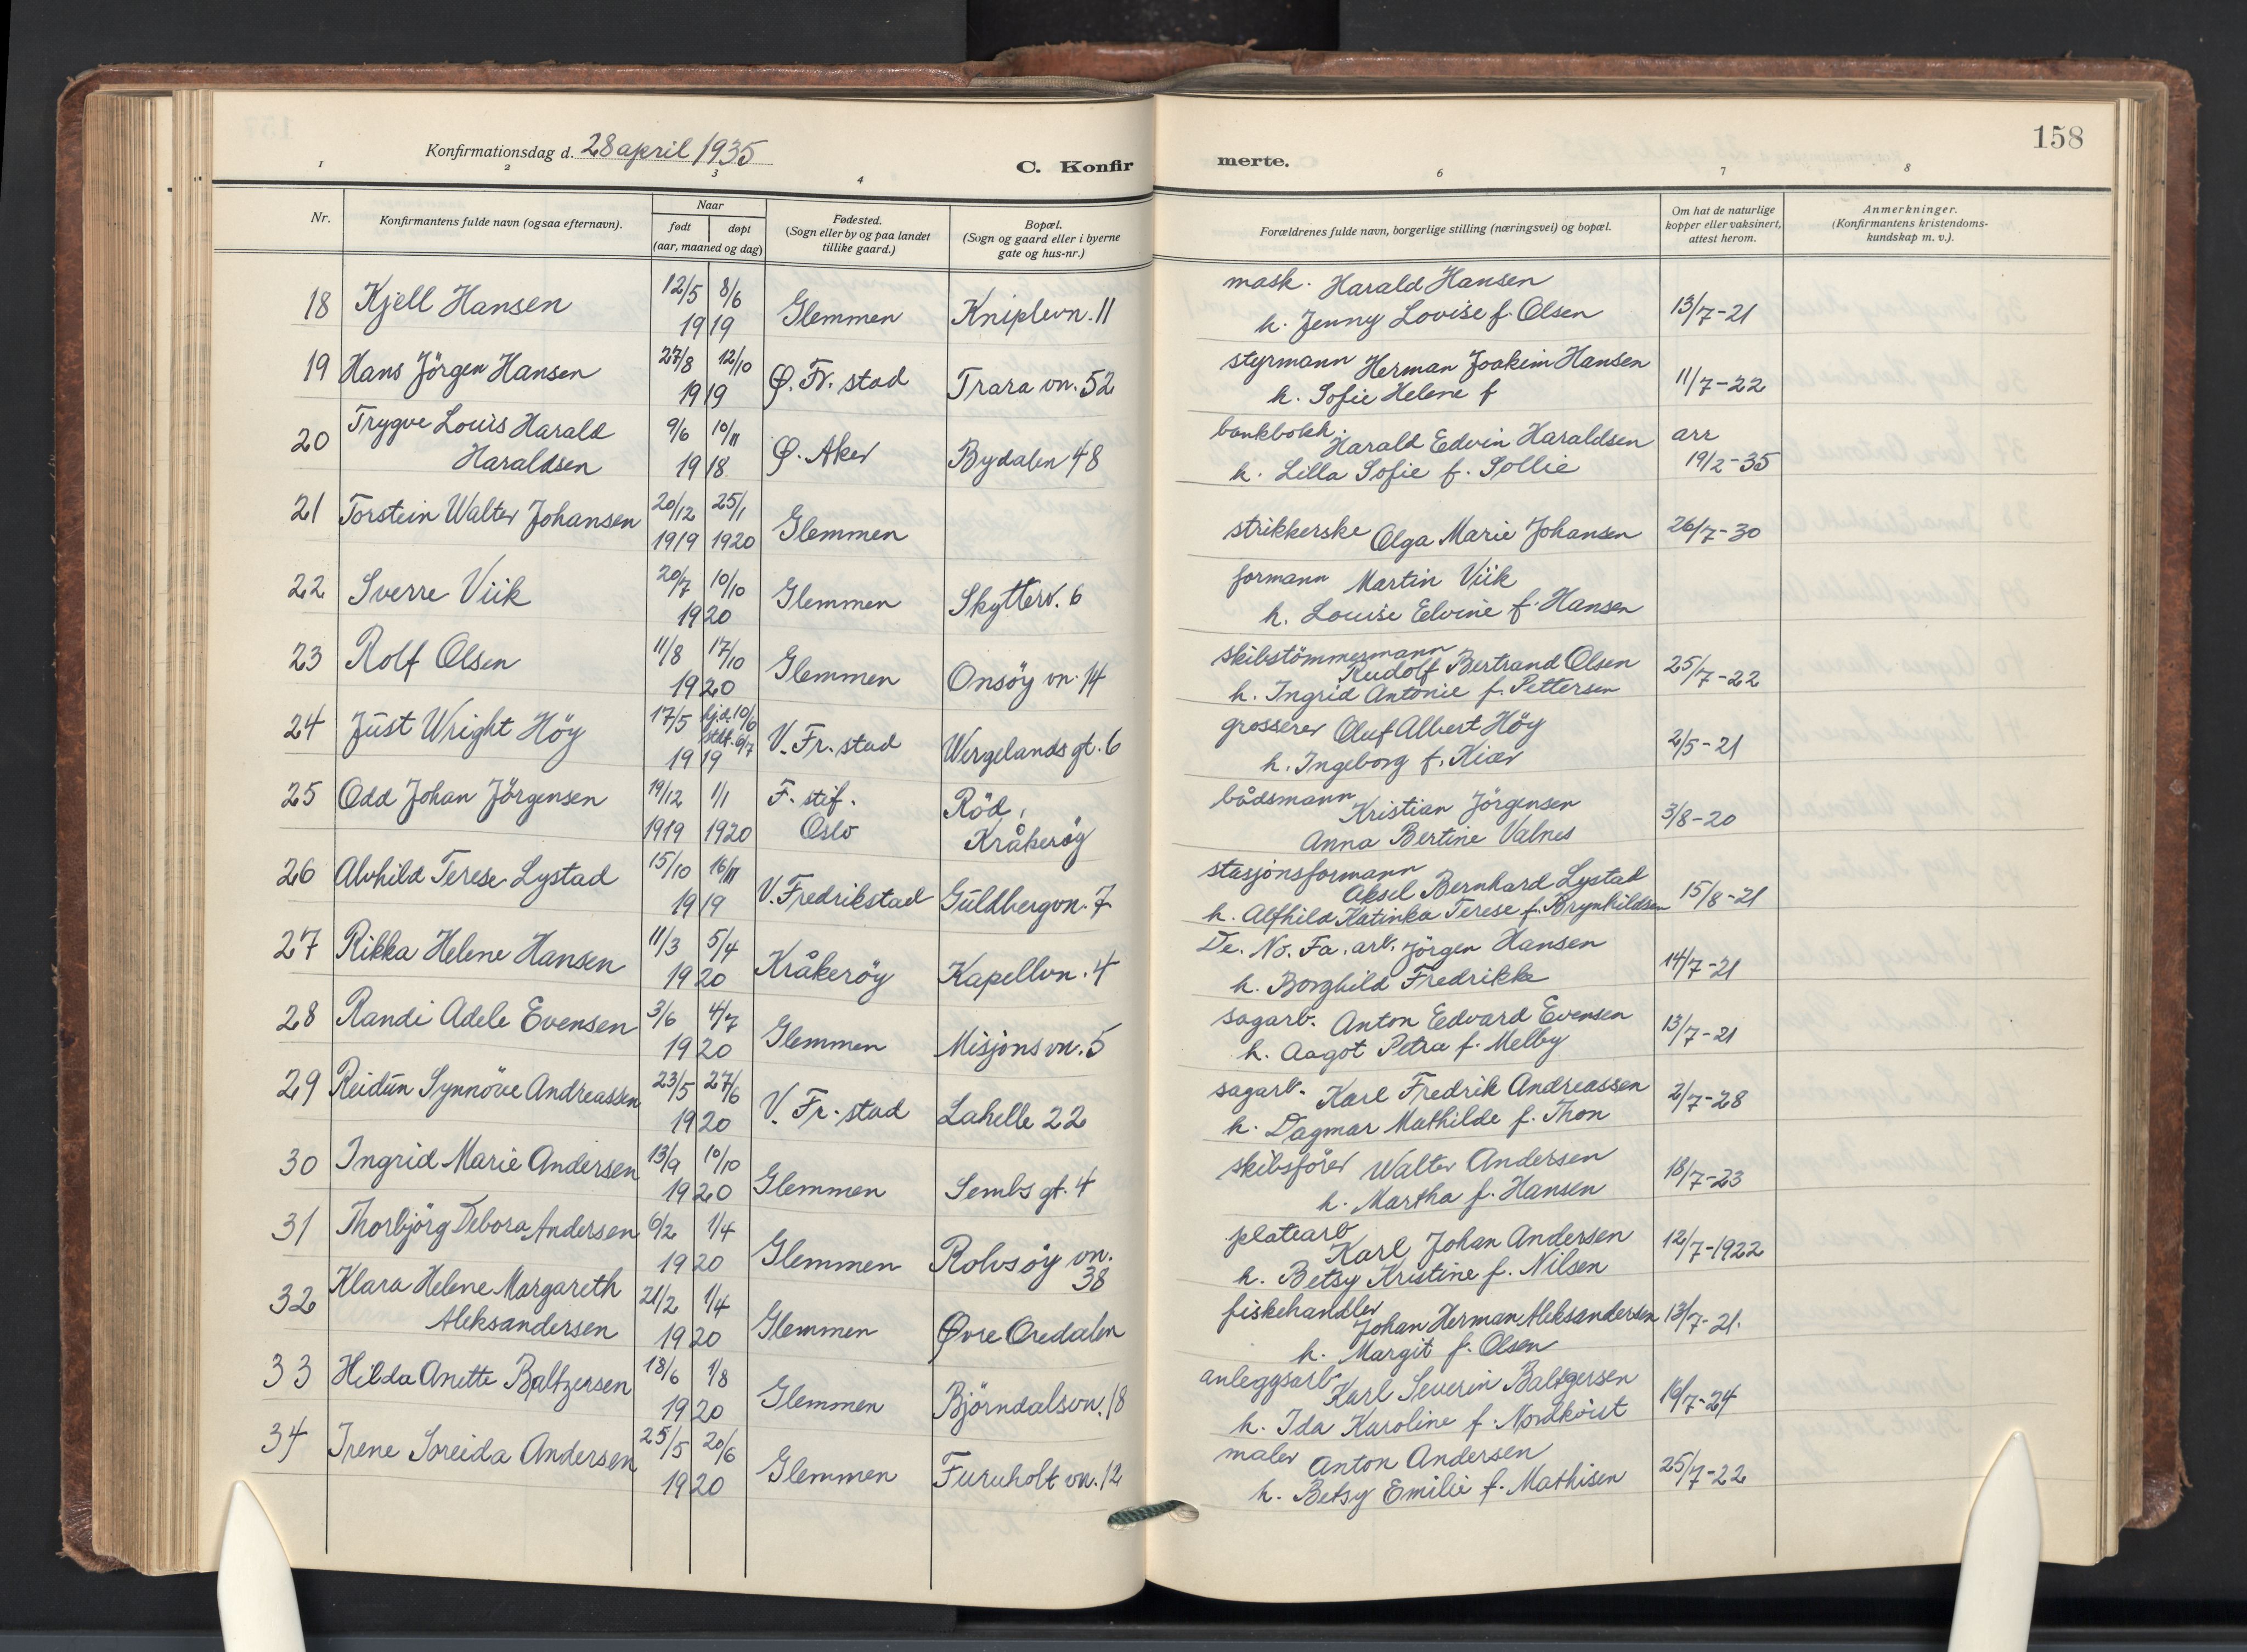 158
Konfirmationsdag d. 28 april 1935
C. Konfirmerte.
1 2 3 4 6 7 8
Nr.
Konfirmantens fulde navn (ogsaa efternavn).
Naar
født
døpt
(aar, maaned og dag)
Fødested.
(Sogn eller by og paa landet
tillike gaard.)
Bopæl.
(Sogn og gaard eller i byerne
gate og hus-nr.)
Forældrenes fulde navn, borgerlige stilling (næringsvei) og bopæl.
Om hat de naturlige
kopper eller vaksinert,
attest herom.
Anmerkninger.
(Konfirmantens kristendoms-
kundskap m. v.).
18 Kjell Hansen 12/5 8/6 1919 Glemmen Kniplevn. 11
mask. Harald Hansen
h. Jenny Lovise f. Olsen 13/7-21
19 Hans Jörgen Hansen 27/8 12/10 1919 Ø. Fr. stad Trara vn. 52
styrmann Herman Joakim Hansen
h. Sofie Helene f 11/7-22
20 Trygve Louis Harald
Haraldsen 9/6 10/11 1918 Ø. Aker Bydalen 48
bankbokh. Harald Edvin Haraldsen arr
h. Lilla Sofie f. Sollie 19/2-35
21 Torstein Walter Johansen 20/12 1919 25/1 1920 Glemmen
strikkerske Olga Marie Johansen 26/7-30
22 Sverre Viik 20/7 10/10 1920 Glemmen Skytterv. 6
formann Martin Viik
h. Louise Elvine f. Hansen
23 Rolf Olsen 11/8 17/10 1920 Glemmen Onsöy vn. 14
skibstömmermann
Rudolf Bertrand Olsen 25/7-22
h. Ingrid Antonie f. Pettersen
24 Just Wright Höy 17/5 hj.d. 10/6
stadf. 6/7 1919 V. Fr. stad Wergelands gt. 6
grosserer Oluf Albert Höy
h. Ingeborg f. Kiær 2/5-21
25 Odd Johan Jörgensen 19/12 1919 1/1 1920 F. stif. Oslo Röd, Kråkeröy
bådsmann Kristian Jörgensen
Anna Bertine Valnes 3/8-20
26 Alvhild Terese Lystad 15/10 16/11 1919 V. Fredrikstad Guldbergvn. 7
stasjonsformann
Aksel Bernhard Lystad
h. Alfhild Katinka Terese f. Brynhildsen 15/8-21
27 Rikka Helene Hansen 11/3 5/4 1920 Kråkeröy Kapellvn. 4
De. No. Fa. arb. Jörgen Hansen
h. Borghild Fredrikke 14/7-21
28 Randi Adele Evensen 3/6 4/7 1920 Glemmen Misjons vn. 5
sagarb. Anton Edvard Evensen
h. Aagot Petra f. Melby 13/7-21
29 Reidun Synnöve Andreassen 23/5 27/6 1920 V. Fr. stad Lahelle 22
sagarb. Karl Fredrik Andreassen
h. Dagmar Mathilde f. Thon 2/7-28
30 Ingrid Marie Andersen 13/9 10/10 1920 Glemmen Sembs gt. 4
skibsförer Walter Andersen
h. Martha f. Hansen 18/7-23
31 Thorbjörg Debora Andersen 6/2 1/4 1920 Glemmen Rolvsöy vn. 38
platearb Karl Johan Andersen
h. Betsy Kristine f. Nilsen 12/7-1922
32 Klara Helene Margareth
Aleksandersen 21/2 1/4 1920 Glemmen Øvre Oredalen
fiskehandler
Johan Herman Aleksandersen 13/7-21.
h. Margit f. Olsen
33 Hilda Anette Baltzersen 18/6 1/8 1920 Glemmen Björndalsvn. 18
anleggsarb Karl Severin Baltzersen
h. Ida Karoline f. Nordkvist 19/7-24
34 Irene Soreida Andersen 25/5 20/6 1920 Glemmen Furuholt vn. 12
maler Anton Andersen
h. Betsy Emilie f. Mathisen 25/7-22